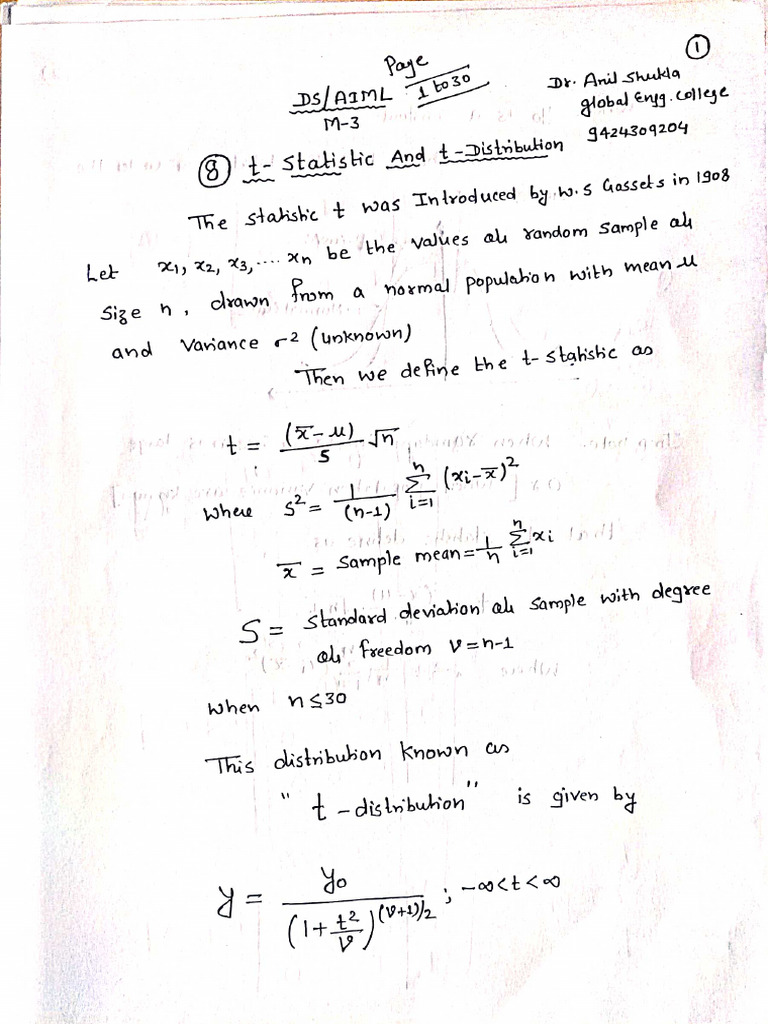 1
Page
1 to 30
DS/AIML
M-3
Dr. Anil Shukla
global Engg. College
9424309204
8 t- Statistic And t-Distribution
The statistic t was Introduced by W.S Gassets in 1908
Let x1, x2, x3, .... xn be the values of random sample of
size n, drawn from a normal population with mean μ
and variance σ² (unknown)
Then we define the t-statistic as
t = (x̄-μ)/S √n
where S² = 1/(n-1) Σ_{i=1}^{n} (xi-x̄)²
x̄ = Sample mean = 1/n Σ_{i=1}^{n} xi
S = Standard deviation of sample with degree
of freedom ν = n-1
when n ≤ 30
This distribution known as
" t - distribution " is given by
y = y0/(1+t²/ν)^{(ν+1)/2} ; -∞<t<∞